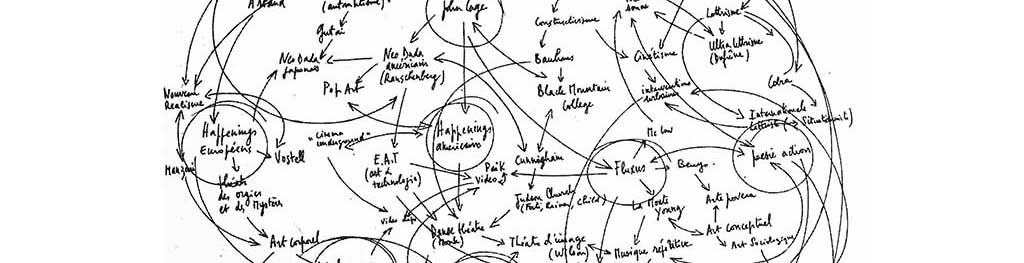 Artaud
(automatisme)
John Cage
Constructivisme
Lettrisme
Gutai
Neo Dada
japonais
Neo Dada
américain
(Rauschenberg)
Bauhaus
Cinétisme
Ultra Lettrisme
(Dufrêne)
Pop Art
Black Mountain
College
interventions
urbaines
Cobra
Nouveau
Réalisme
Internationale
Lettriste (→ Situationniste)
Happenings
Européens
"cinema
underground"
Happenings
américains
Mc Low
Vostell
E.A.T
(art &
technologie)
Paik
video
Cunningham
Fluxus
Beuys
poésie action
théâtre
des orgies
et des Mystères
Judson Church
(Forti, Rainer, Child)
La Monte
Young
Arte povera
Danse théâtre
(Monk)
Art corporel
Théâtre d'image
(Wilson)
Musique répétitive
Art conceptuel
Art Sociologique